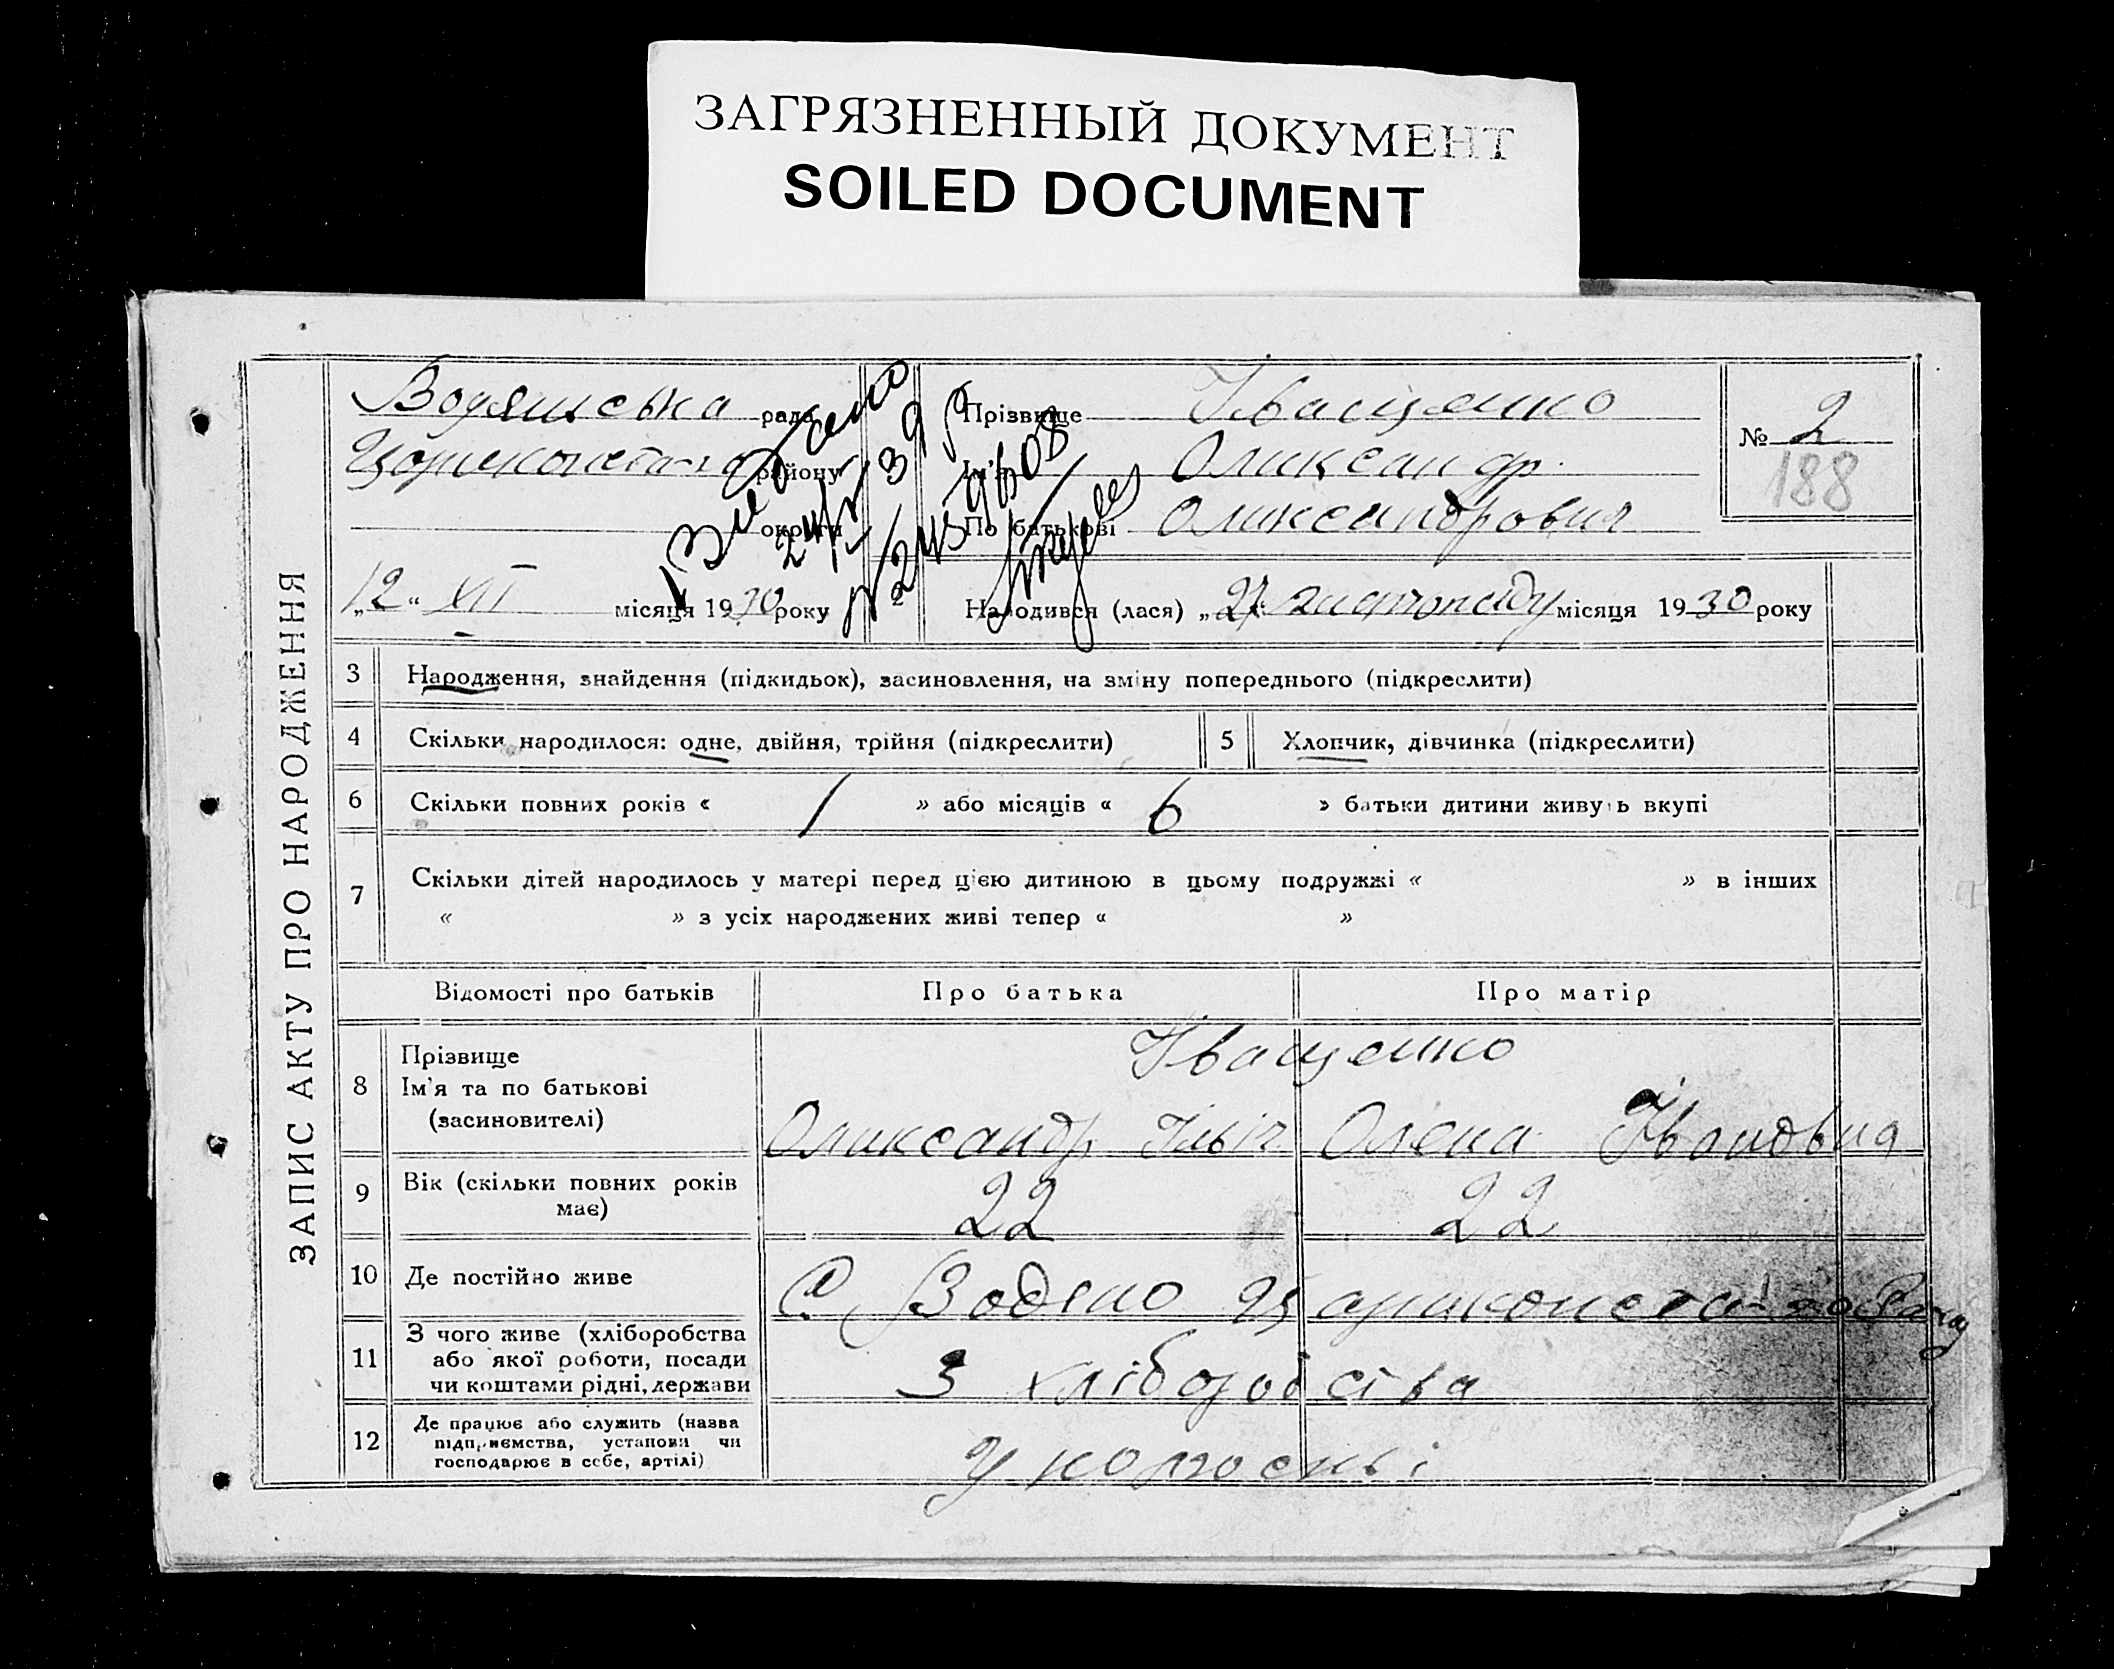 ЗАГРЯЗНЕННЫЙ ДОКУМЕНТ
SOILED DOCUMENT
ЗАПИС АКТУ ПРО НАРОДЖЕННЯ
Водянська рада
району
округи
„12“ XII місяця 1930 року
24/V 39 р
Прізвище Іващенко
Ім'я Оликсандр
По батькові Оликсандрович
№ 2
188
2 Народився (лася) „27“ листопаду місяця 1930 року
3 Народження, знайдення (підкидьок), засиновлення, на зміну попереднього (підкреслити)
4 Скільки народилося: одне, двійня, трійня (підкреслити) 5 Хлопчик, дівчинка (підкреслити)
6 Скільки повних років « 1 » або місяців « 6 » батьки дитини живуть вкупі
7 Скільки дітей народилось у матері перед цією дитиною в цьому подружжі « » в інших
« » з усіх народжених живі тепер « »
Відомості про батьків Про батька Про матір
8 Прізвище
Ім'я та по батькові
(засиновителі)
Іващенко
Оликсандр Ільіч Олена Івановна
9 Вік (скільки повних років
має)
22 22
10 Де постійно живе С. Водяно
11 З чого живе (хліборобства
або якої роботи, посади
чи коштами рідні, держави
З хліборобства
12 Де працює або служить (назва
підприємства, установи чи
господарює в себе, артілі)